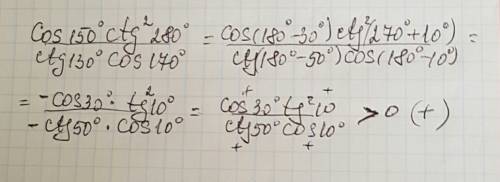 cos150° ctg²280° / ctg130° cos170° = cos(180°-30°) ctg²(270°+10°) / ctg(180°-50°) cos(180°-10°) =
= -cos30° · tg²10° / -ctg50° · cos10° = cos30° tg²10 / ctg50° cos10° > 0 (+)